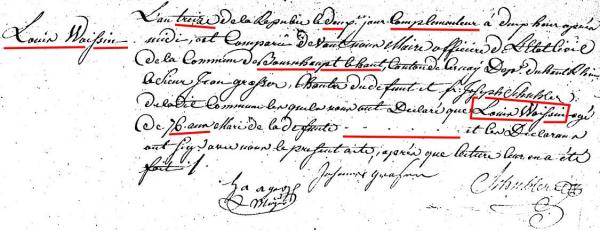 Louis Waissin
L'an treize de la Repub. le jour Complementaire à heure après
midi, est Comparu devant nous Maire officier de L'Etat Civil
de la Commune de Bournhaupt le haut, Canton de Cernay Dep.t du haut Rhin
le Sieur Jean grasser, du defunt et fr. Joseph Schubler
de la dit Commune lesquels nous ont Declaré que Louis Waissin agé
de 76 ans Mari de la defunte et les Declarans
ont signé avec nous le present acte, après que lecture leur en a été
fait /.
Johannes grasser
Schubler